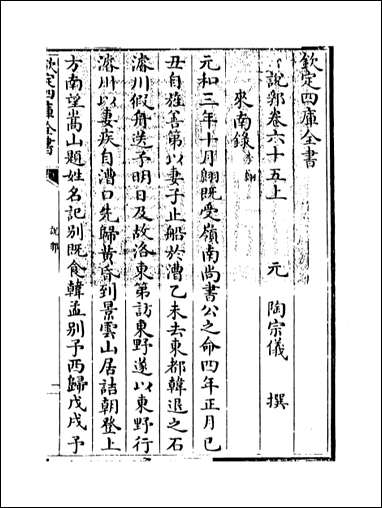 欽定四庫全書
說郛卷六十五上
元 陶宗儀 撰
來南錄 李翺
元和三年十月翺既受嶺南尚書公之命四年正月己
丑自旌善第以妻子止船於漕乙未去東都韓退之石
濬川假舟送予明日及故洛東第訪東野遂以東野行
濬川以妻疾自漕口先歸黃昏到景雲山居詰朝登上
方南望嵩山題姓名記別既食韓孟別予西歸戊戌予
欽定四庫全書
說郛
一